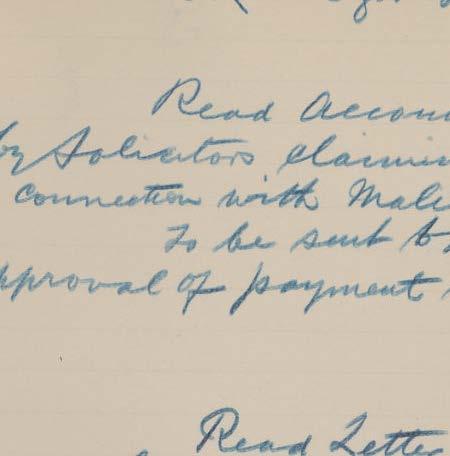 Read Accoun
by Solicitors claimin
connection with Mal
To be sent to
pproval of payment
Read Lette